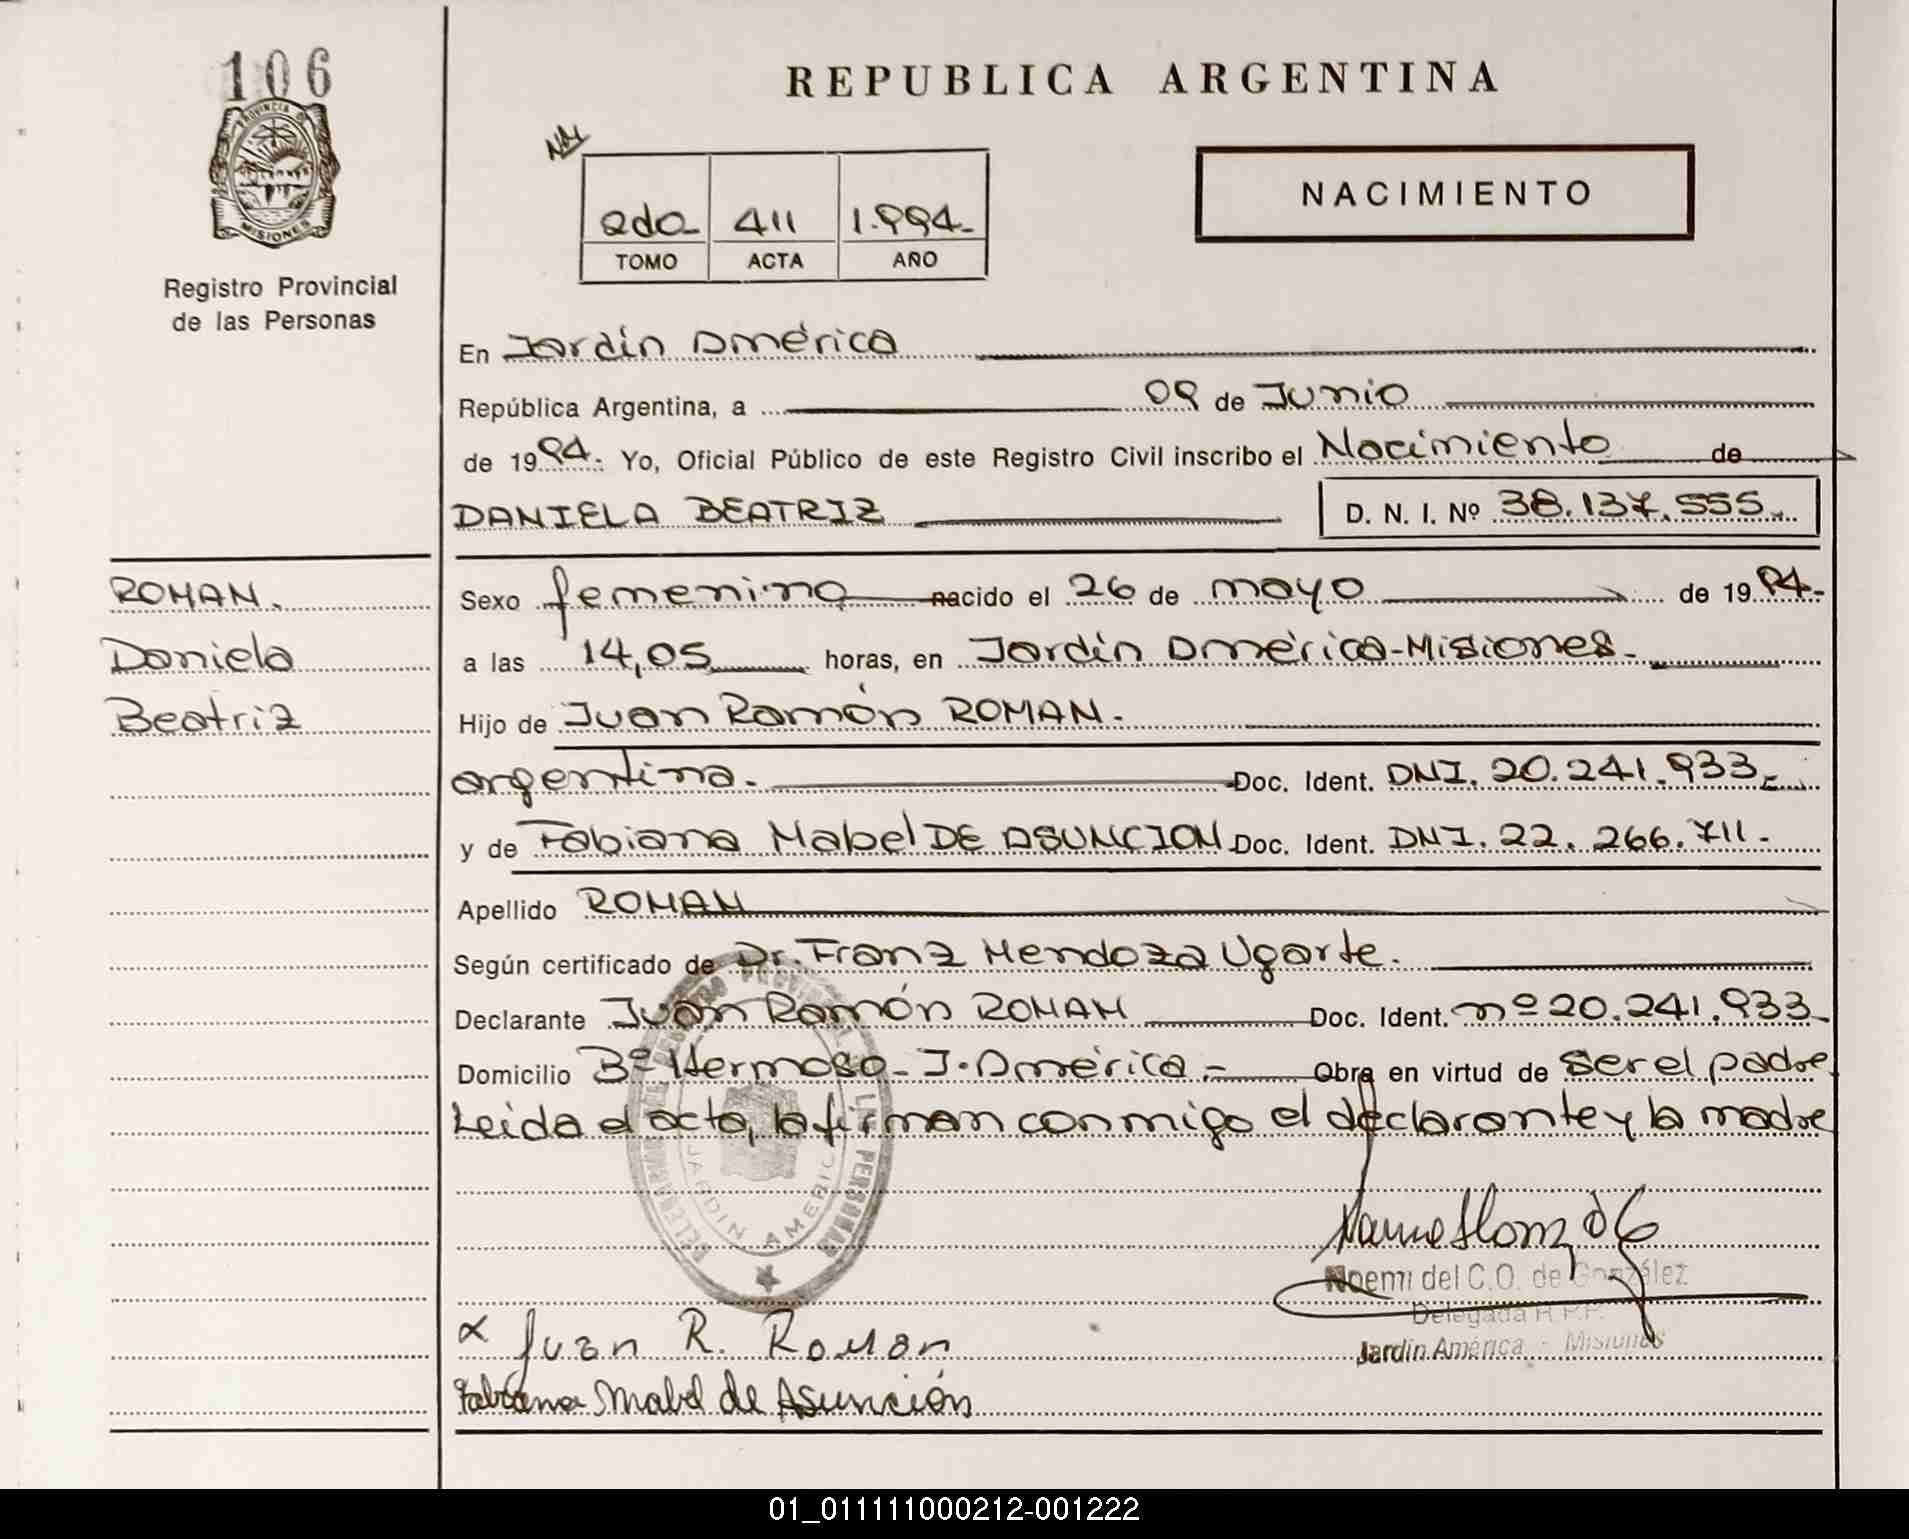 106
PROVINCIA D
MISIONES
Registro Provincial
de las Personas
REPUBLICA ARGENTINA
2do- 411 1.994.-
TOMO ACTA AÑO
NACIMIENTO
En Jardín América
República Argentina, a 09 de Junio
de 1994.- Yo, Oficial Público de este Registro Civil inscribo el Nacimiento de
DANIELA BEATRIZ D. N. I. Nº 38.137.555.-
ROMAN.
Daniela
Beatriz
Sexo femenino nacido el 26 de mayo de 1994.-
a las 14,05 horas, en Jardín América-Misiones.-
Hijo de Juan Ramón ROMAN.-
argentina.- Doc. Ident. DNI. 20.241.933.-
y de Fabiana Mabel DE ASUNCION Doc. Ident. DNI. 22.266.711.-
Apellido ROMAN
Según certificado de Dr. Franz Mendoza Ugarte.
Declarante Juan Ramón ROMAN Doc. Ident. nº 20.241.933
Domicilio Bº Hermoso- J. América.- Obra en virtud de ser el padre
Leida el acta, la firman conmigo el declarante y la madre
JARDIN AMERICA
Noemi del C.O. de González
Delegada R.P.P.
Jardín América - Misiones
Juan R. Roman
Fabiana Mabel de Asunción
01_011111000212-001222